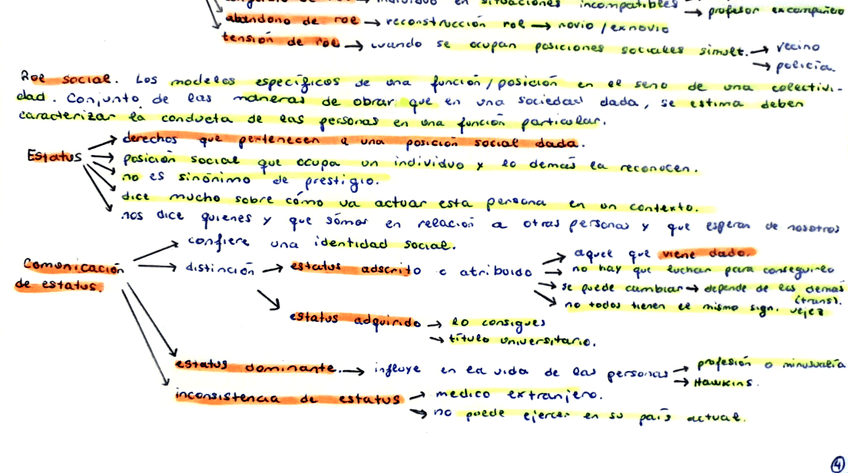 individuo en situaciones incompatibles → profesor excompañero
abandono de rol → reconstrucción rol → novio / exnovio
tensión de rol → cuando se ocupan posiciones sociales simult. → vecino
→ policía.
Rol social. Los modelos específicos de una función / posición en el seno de una colectivi-
dad. Conjunto de las maneras de obrar que en una sociedad dada, se estima deben
caracterizar la conducta de las personas en una función particular.
Estatus → derechos que pertenecen a una posición social dada.
→ posición social que ocupa un individuo y lo demás la reconocen.
→ no es sinónimo de prestigio.
→ dice mucho sobre cómo va actuar esta persona en un contexto.
→ nos dice quienes y que sómos en relación a otras personas y que esperan de nosotros
Comunicación de estatus. → confiere una identidad social.
→ distinción → estatus adscrito o atribuido → aquel que viene dado.
→ no hay que luchar para conseguirlo
→ se puede cambiar → depende de los demás (trans).
→ no todos tienen el mismo sign. vejez
→ estatus adquirido → lo consigues
→ título universitario.
→ estatus dominante. → influye en la vida de las personas → profesión o minusvalía
→ Hawkins.
→ inconsistencia de estatus → medico extranjero.
→ no puede ejercer en su país actual.
4